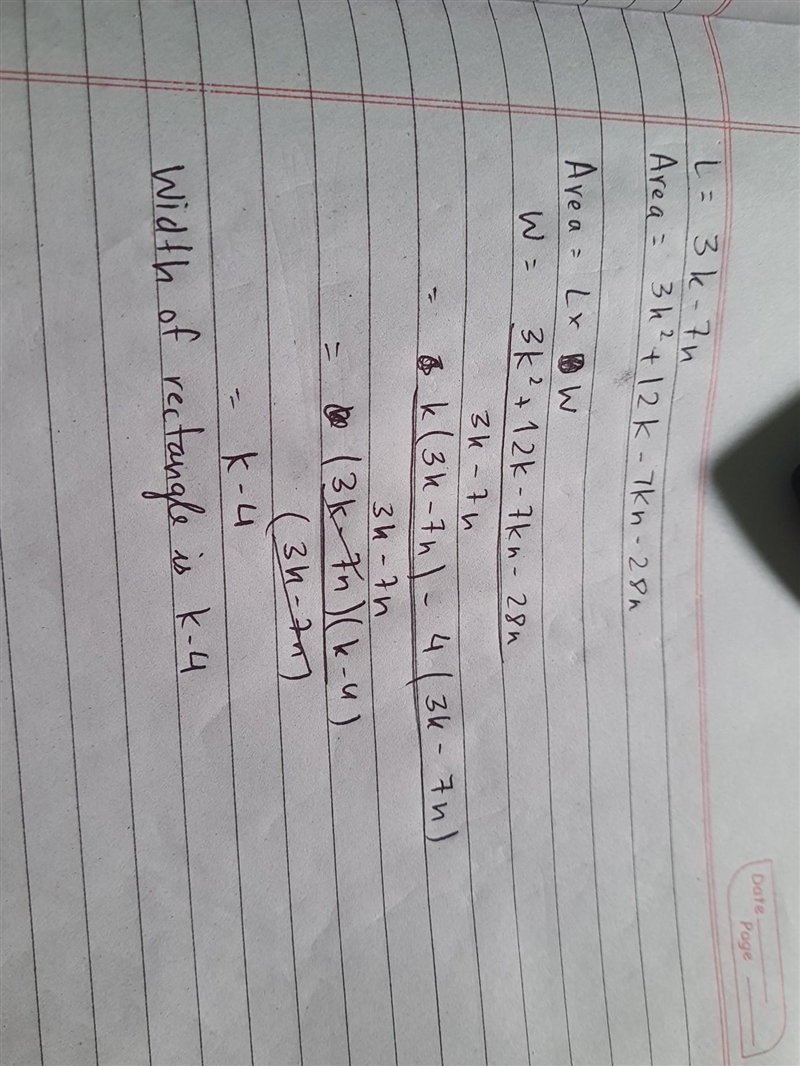 Date
Page
L = 3k - 7n
Area = 3k² + 12k - 7kn - 28n
Area = L x W
W = 3k² + 12k - 7kn - 28n
3k - 7n
= k(3k - 7n) - 4(3k - 7n)
3k - 7n
= (3k - 7n)(k - 4)
(3k - 7n)
= k - 4
Width of rectangle is k - 4